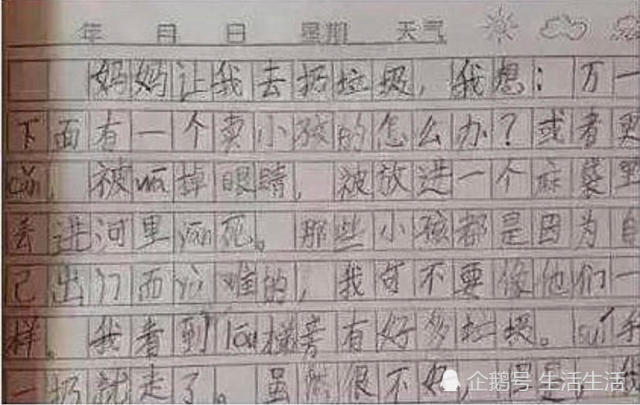 年 月 日 星期 天气
妈妈让我去扔垃圾,我想:万一
下面有一个卖小孩的怎么办?或者更
cǎn,被wā掉眼睛,被放进一个麻袋里
丢进河里yān死。那些小孩都是因为自
己出门而 难的,我可不要像他们一
样。我看到lóu梯旁有好多垃圾。suí
一扔就走了。虽然很不好,但是
企鹅号 生活生活